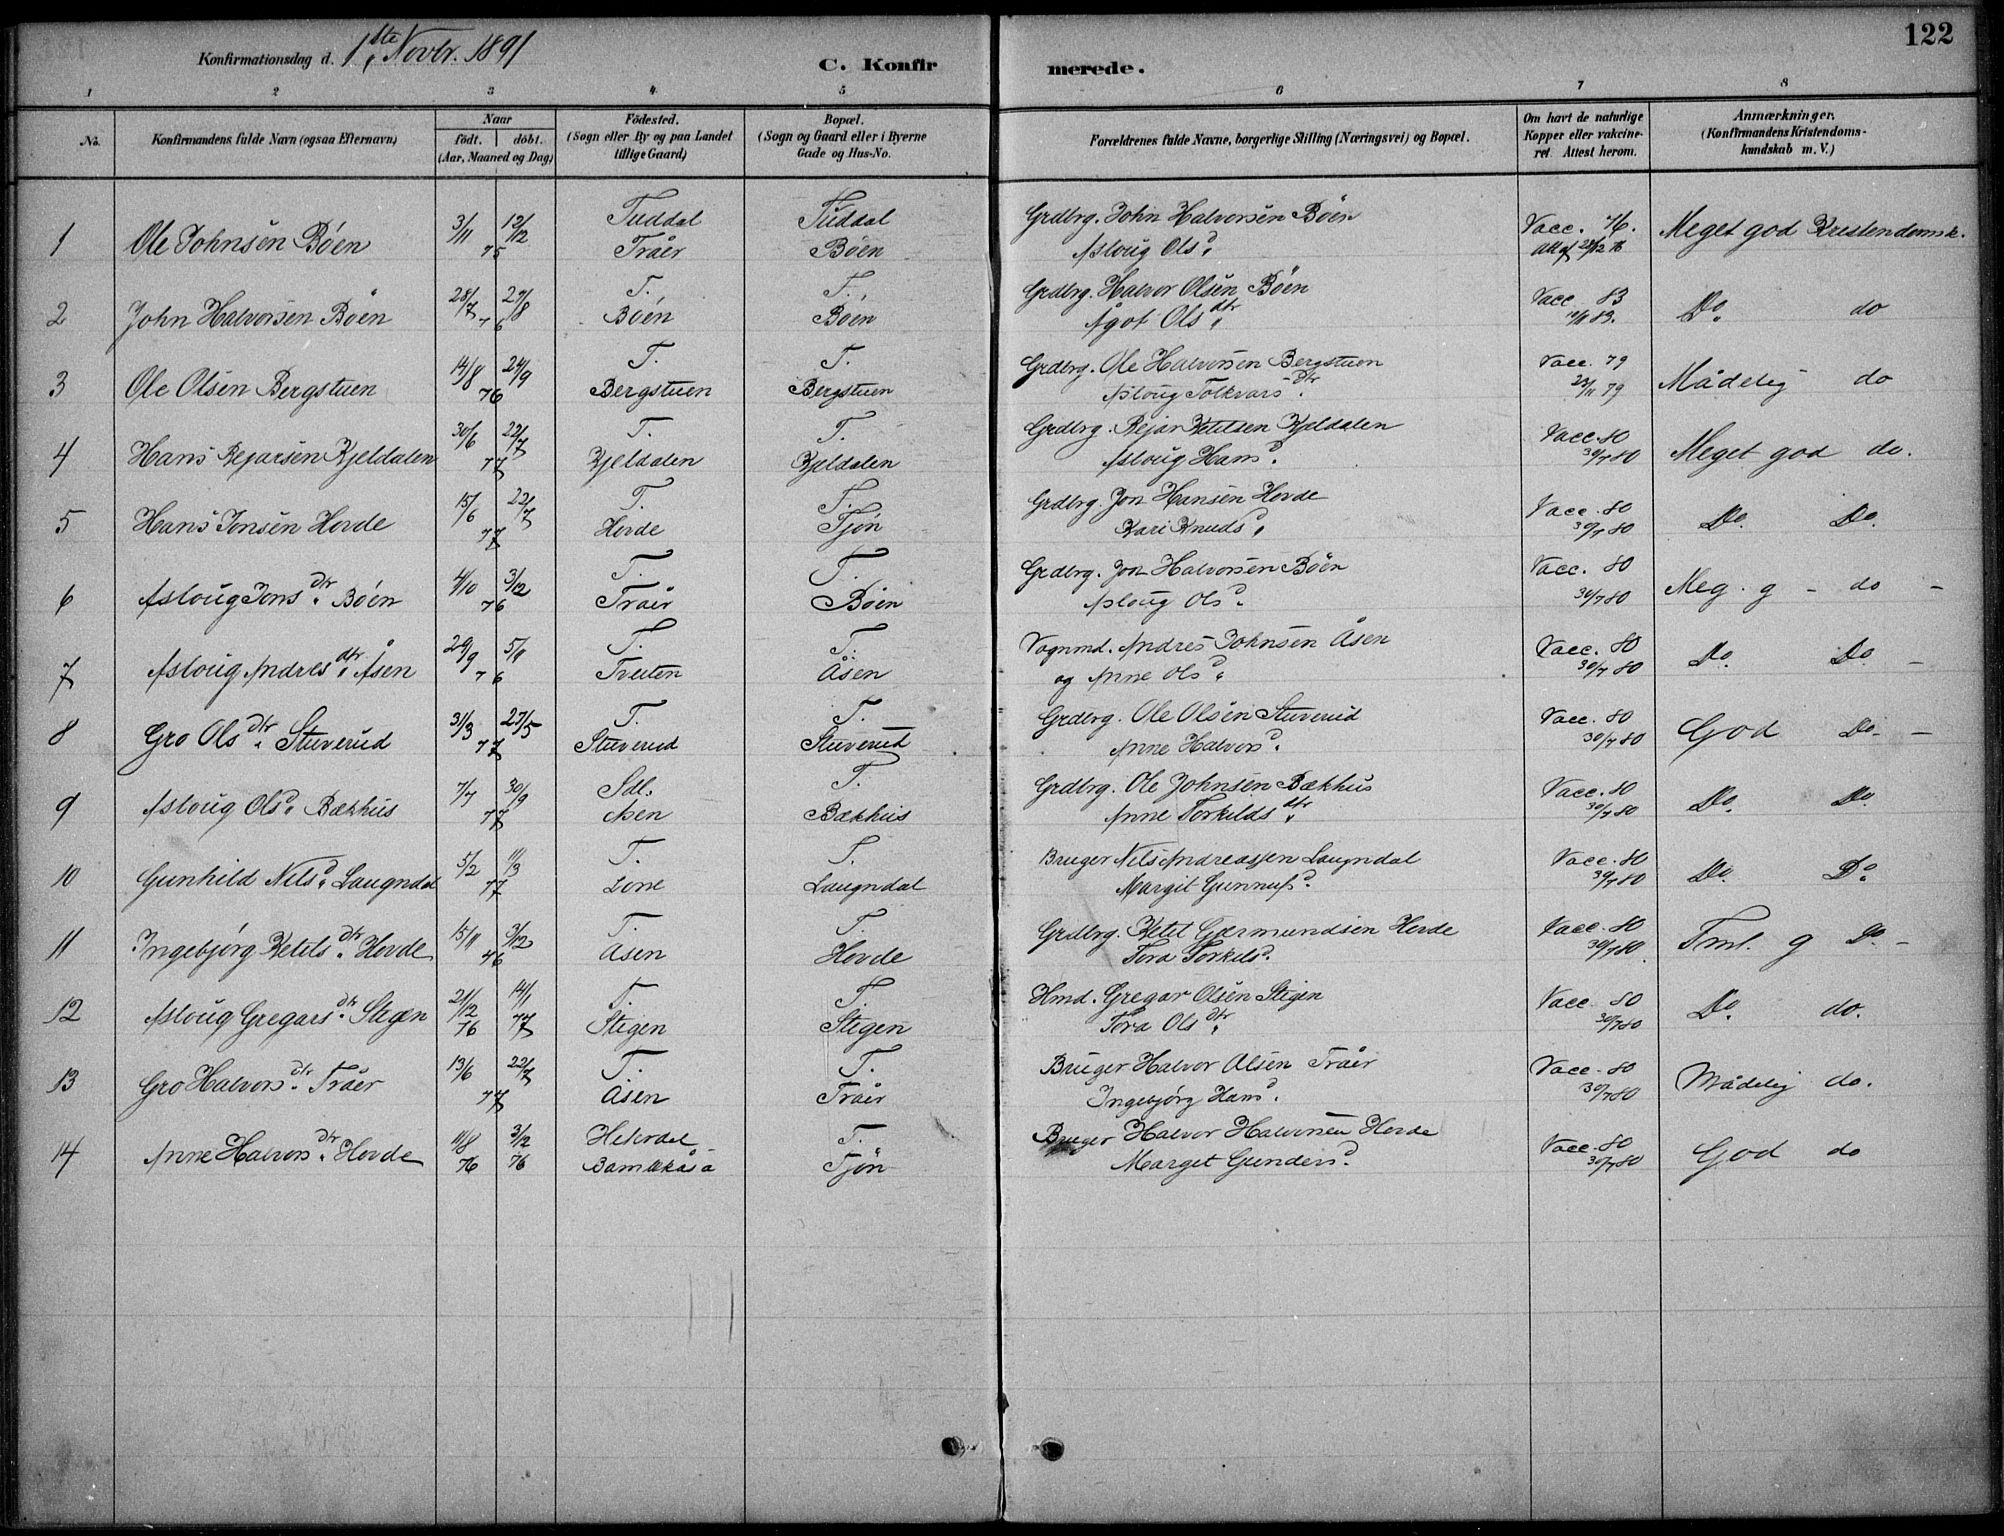 122
Konfirmationsdag d. 1ste Novbr. 1891
C. Konfirmerede.
1 2 3 4 5 6 7 8
No. Konfirmandens fulde Navn (ogsaa Efternavn) Naar födt. döbt. (Aar, Maaned og Dag) Födested. (Sogn eller By og paa Landet tillige Gaard) Bopæl. (Sogn og Gaard eller i Byerne Gade og Hus-No. Forældrenes fulde Navne, borgerlige Stilling (Næringsvei) og Bopæl. Om havt de naturlige Kopper eller vakcineret. Attest herom. Anmærkninger. (Konfirmandens Kristendomskundskab m. V.)
1 Ole Johnsen Böen 3/11 12/12 75 Tuddal Tråer Tuddal Böen Grdbrg. John Halvorsen Böen Asloug Olsd. Vacc. 76. Att af 28/12 76 Meget god Kristendomsk.
2 John Halvorsen Böen 28/7 27/8 76 T. Böen T. Böen Grdbrg. Halvor Olsen Böen Ågot Olsdtr. Vacc. 83 83. Do. do
3 Ole Olsen Bergstuen 14/8 24/9 76 T. Bergstuen T. Bergstuen Grdbrg. Ole Halvorsen Bergstuen Asloug Tolkvarsdtr. Vacc. 79 23/11 79 Mådelig do
4 Hans Rejarsen Kjeldalen 30/6 22/7 77 T. Kjeldalen T. Kjeldalen Grdbrg. Rejar Ketilsen Kjeldalen Asloug Hansd. Vacc. 80 30/7 80 Meget god do.
5 Hans Jonsen Hovde 15/6 22/7 77 T. Hovde T. Tjön Grdbrg. Jon Hansen Hovde Kari Knudsd. Vacc. 80 30/7 80 Do. Do.
6 Asloug Jonsdtr. Böen 4/10 3/12 76 T. Tråer T. Böen Grdbrg. Jon Halvorsen Böen Asloug Olsd. Vacc. 80 30/7 80 Meg. g - do -
7 Asloug Andresdtr. Åsen 29/9 5/11 76 T. Tveiten T. Åsen Vognmd. Andres Johnsen Åsen og Anne Olsd. Vacc. 80 30/7 80 Do. Do. -
8 Gro Olsdtr. Stuverud 31/3 27/5 77 T. Stuverud T. Stuverud Grdbrg. Ole Olsen Stuverud Anne Halvorsd. Vacc. 80 30/7 80 God Do. -
9 Asloug Olsd. Bækhus 7/7 30/9 77 Sdl. Åsen T. Bækhus Grdbrg. Ole Johnsen Bækhus Anne Torkildsdtr. Vacc. 80 30/7 80 Do. Do.
10 Gunhild Nilsd. Laugndal 5/2 11/3 77 T. Lone T. Laugndal Bruger Nils Andreassen Laugndal Margit Gunnufsd. Vacc. 80 30/7 80 Do. Do.
11 Ingebjörg Ketilsdtr. Hovde 15/11 3/12 76 T. Åsen T. Hovde Grdbrg. Ketil Gjermundsen Hovde Tora Torkilsd. Vacc. 80 30/7 80. Tml. g Do. -
12 Asloug Gregarsdtr. Stigen 21/12 76 14/1 77 T. Stigen T. Stigen Hmd. Gregar Olsen Stigen Tora Olsdtr. Vacc. 80 30/7 80 Do. do.
13 Gro Halvorsdtr. Tråer 13/6 22/7 77 T. Åsen T. Tråer Bruger Halvor Olsen Tråer Ingebjörg Hansd. Vacc. 80 30/7 80 Mådelig do.
14 Anne Halvorsdtr. Hovde 11/8 76 3/12 76 Hiterdal T. Tjön Bruger Halvor Halvorsen Hovde Marget Gundersd. Vacc. 80 30/7 80 God do